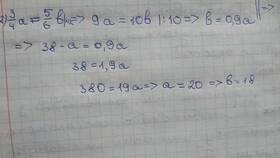 2) 3/4 a = 5/6 b => 9a = 10b |:10 => b = 0,9a =>
=> 38 - a = 0,9a
38 = 1,9a
380 = 19a => a = 20 => b = 18